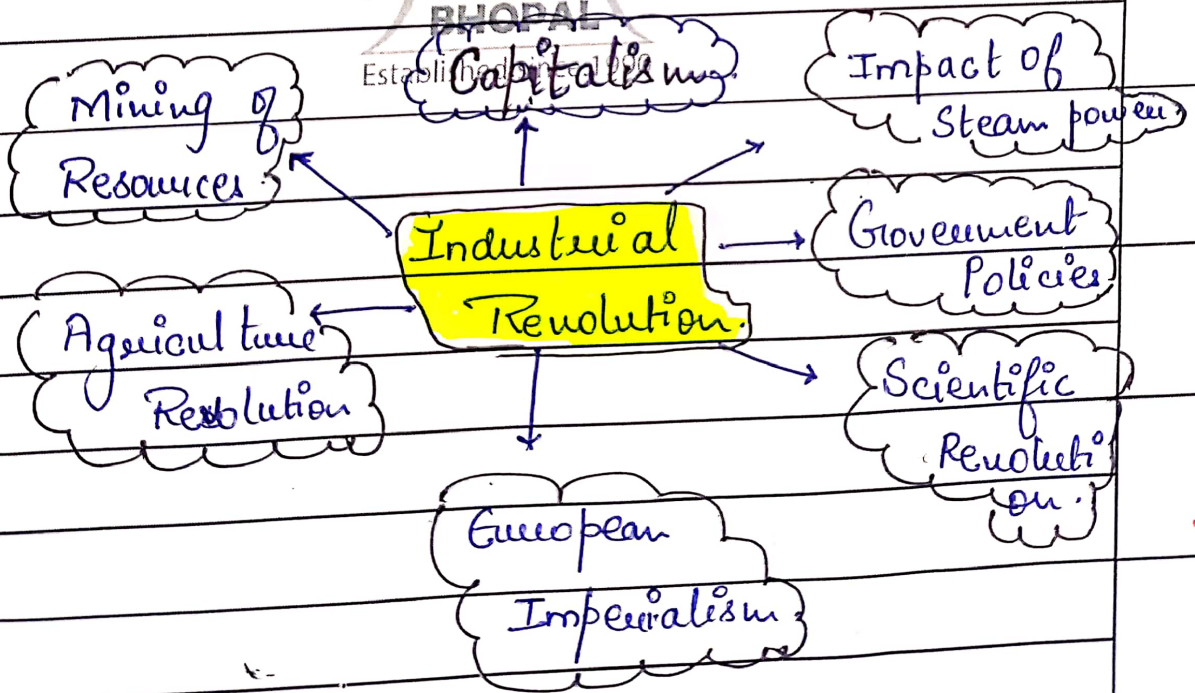 BHOPAL
Capitalism.
Impact of
Steam power.
Mining of
Resources.
Industrial
Revolution.
Government
Policies.
Agriculture
Revolution
Scientific
Revoluti
on.
European
Imperialism.